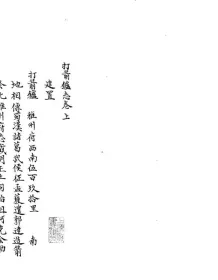 打箭鑪志卷上
建置
打箭鑪 雅州府西南伍百玖拾里 南
地相傳蜀漢諸葛武侯征孟獲遣郭達造箭
於此雅州府志載明